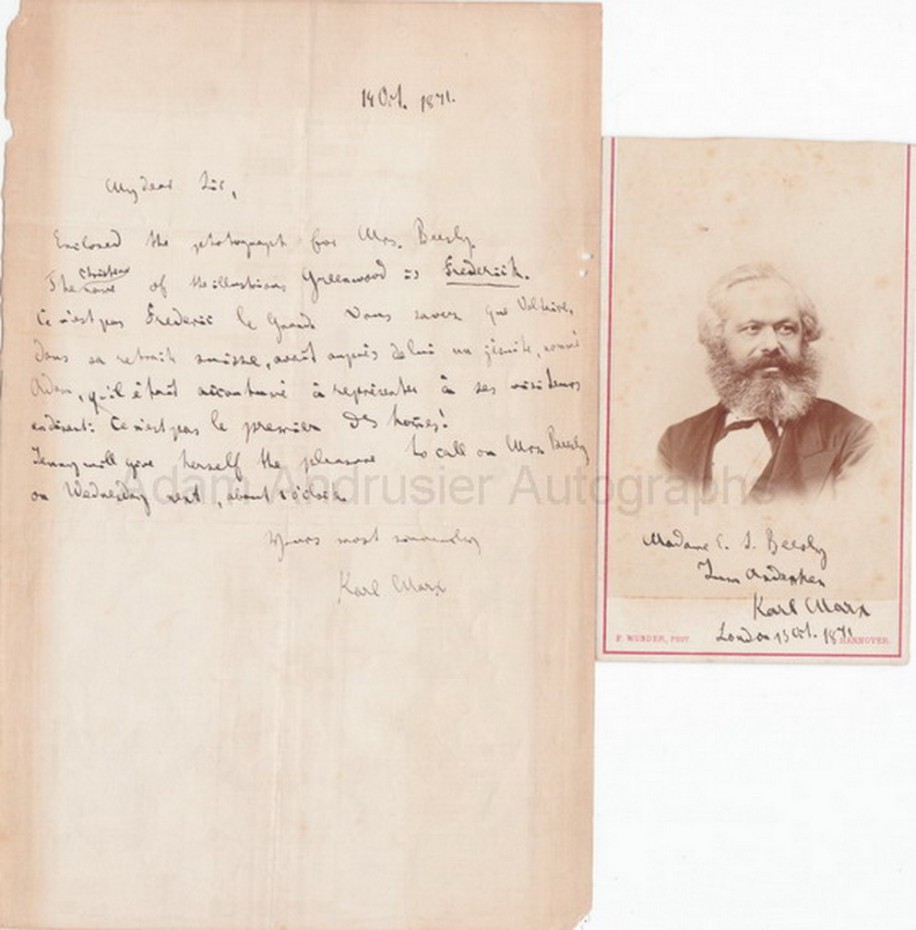 14 Oct. 1871.
My dear Sir,
Enclosed the photograph for Mrs. Beesly.
Christian
The name of the illustrious Greenwood is Frederick.
Ce n'est pas Frederic le Grand. Vous savez que Voltaire,
dans sa retrait suisse, avait auprès de lui un jésuite, nommé
Adam, qu'il était accoutumé à représenter à ses visiteurs
en disant: Ce n'est pas le premier des hommes!
Jenny will give herself the pleasure to call on Mrs Beesly
on Wednesday next, about o'clock.
Yours most sincerely
Karl Marx
Adam Andrusier Autographs
Madame E. S. Beesly
Zum Andenken
Karl Marx
London 13 Oct. 1871
F. WUNDER, PHOT. HANNOVER.